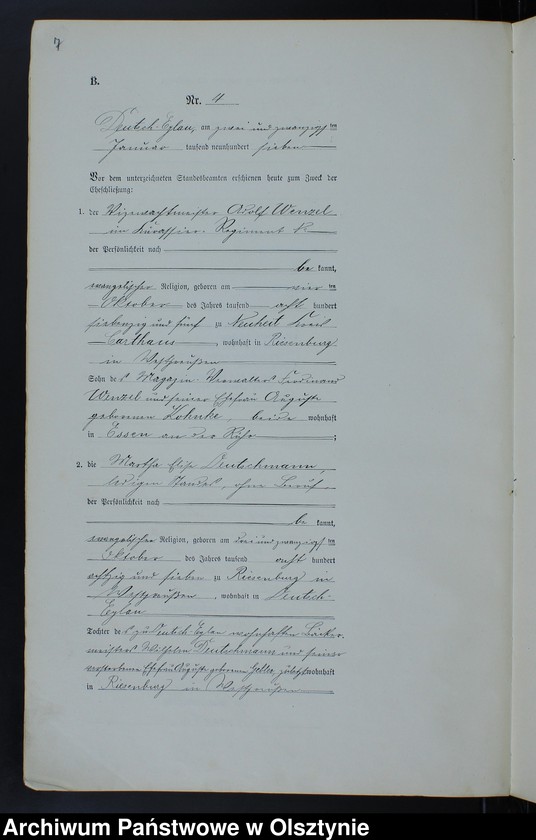 7
B.
Nr. 4
Deutsch-Eylau, am zwei und zwanzigsten
Januar tausend neunhundert sieben
Vor dem unterzeichneten Standesbeamten erschienen heute zum Zweck der
Eheschließung:
1. der Vizewachtmeister Adolf Wenzel
im Kürassier-Regiment
der Persönlichkeit nach
be kannt,
evangelischer Religion, geboren am vier ten
Oktober des Jahres tausend acht hundert
siebenzig und fünf zu Neuheit Kreis
Carthaus, wohnhaft in Riesenburg
in Westpreußen
Sohn des Magazin-Verwalters Ferdinand
Wenzel und seiner Ehefrau Auguste
geborenen Kohnke, beide wohnhaft
in Essen an der Ruhr;
2. die Martha Elise Deutschmann,
ledigen Standes, ohne Beruf
der Persönlichkeit nach
be kannt,
evangelischer Religion, geboren am drei und zwanzigsten
Oktober des Jahres tausend acht hundert
achtzig und sieben zu Riesenburg in
Westpreußen, wohnhaft in Deutsch-
Eylau
Tochter des zu Deutsch-Eylau wohnhaften Bäcker-
meisters Wilhelm Deutschmann und seiner
verstorbenen Ehefrau Auguste geborenen zuletzt wohnhaft
in Riesenburg in Westpreußen
Archiwum Państwowe w Olsztynie